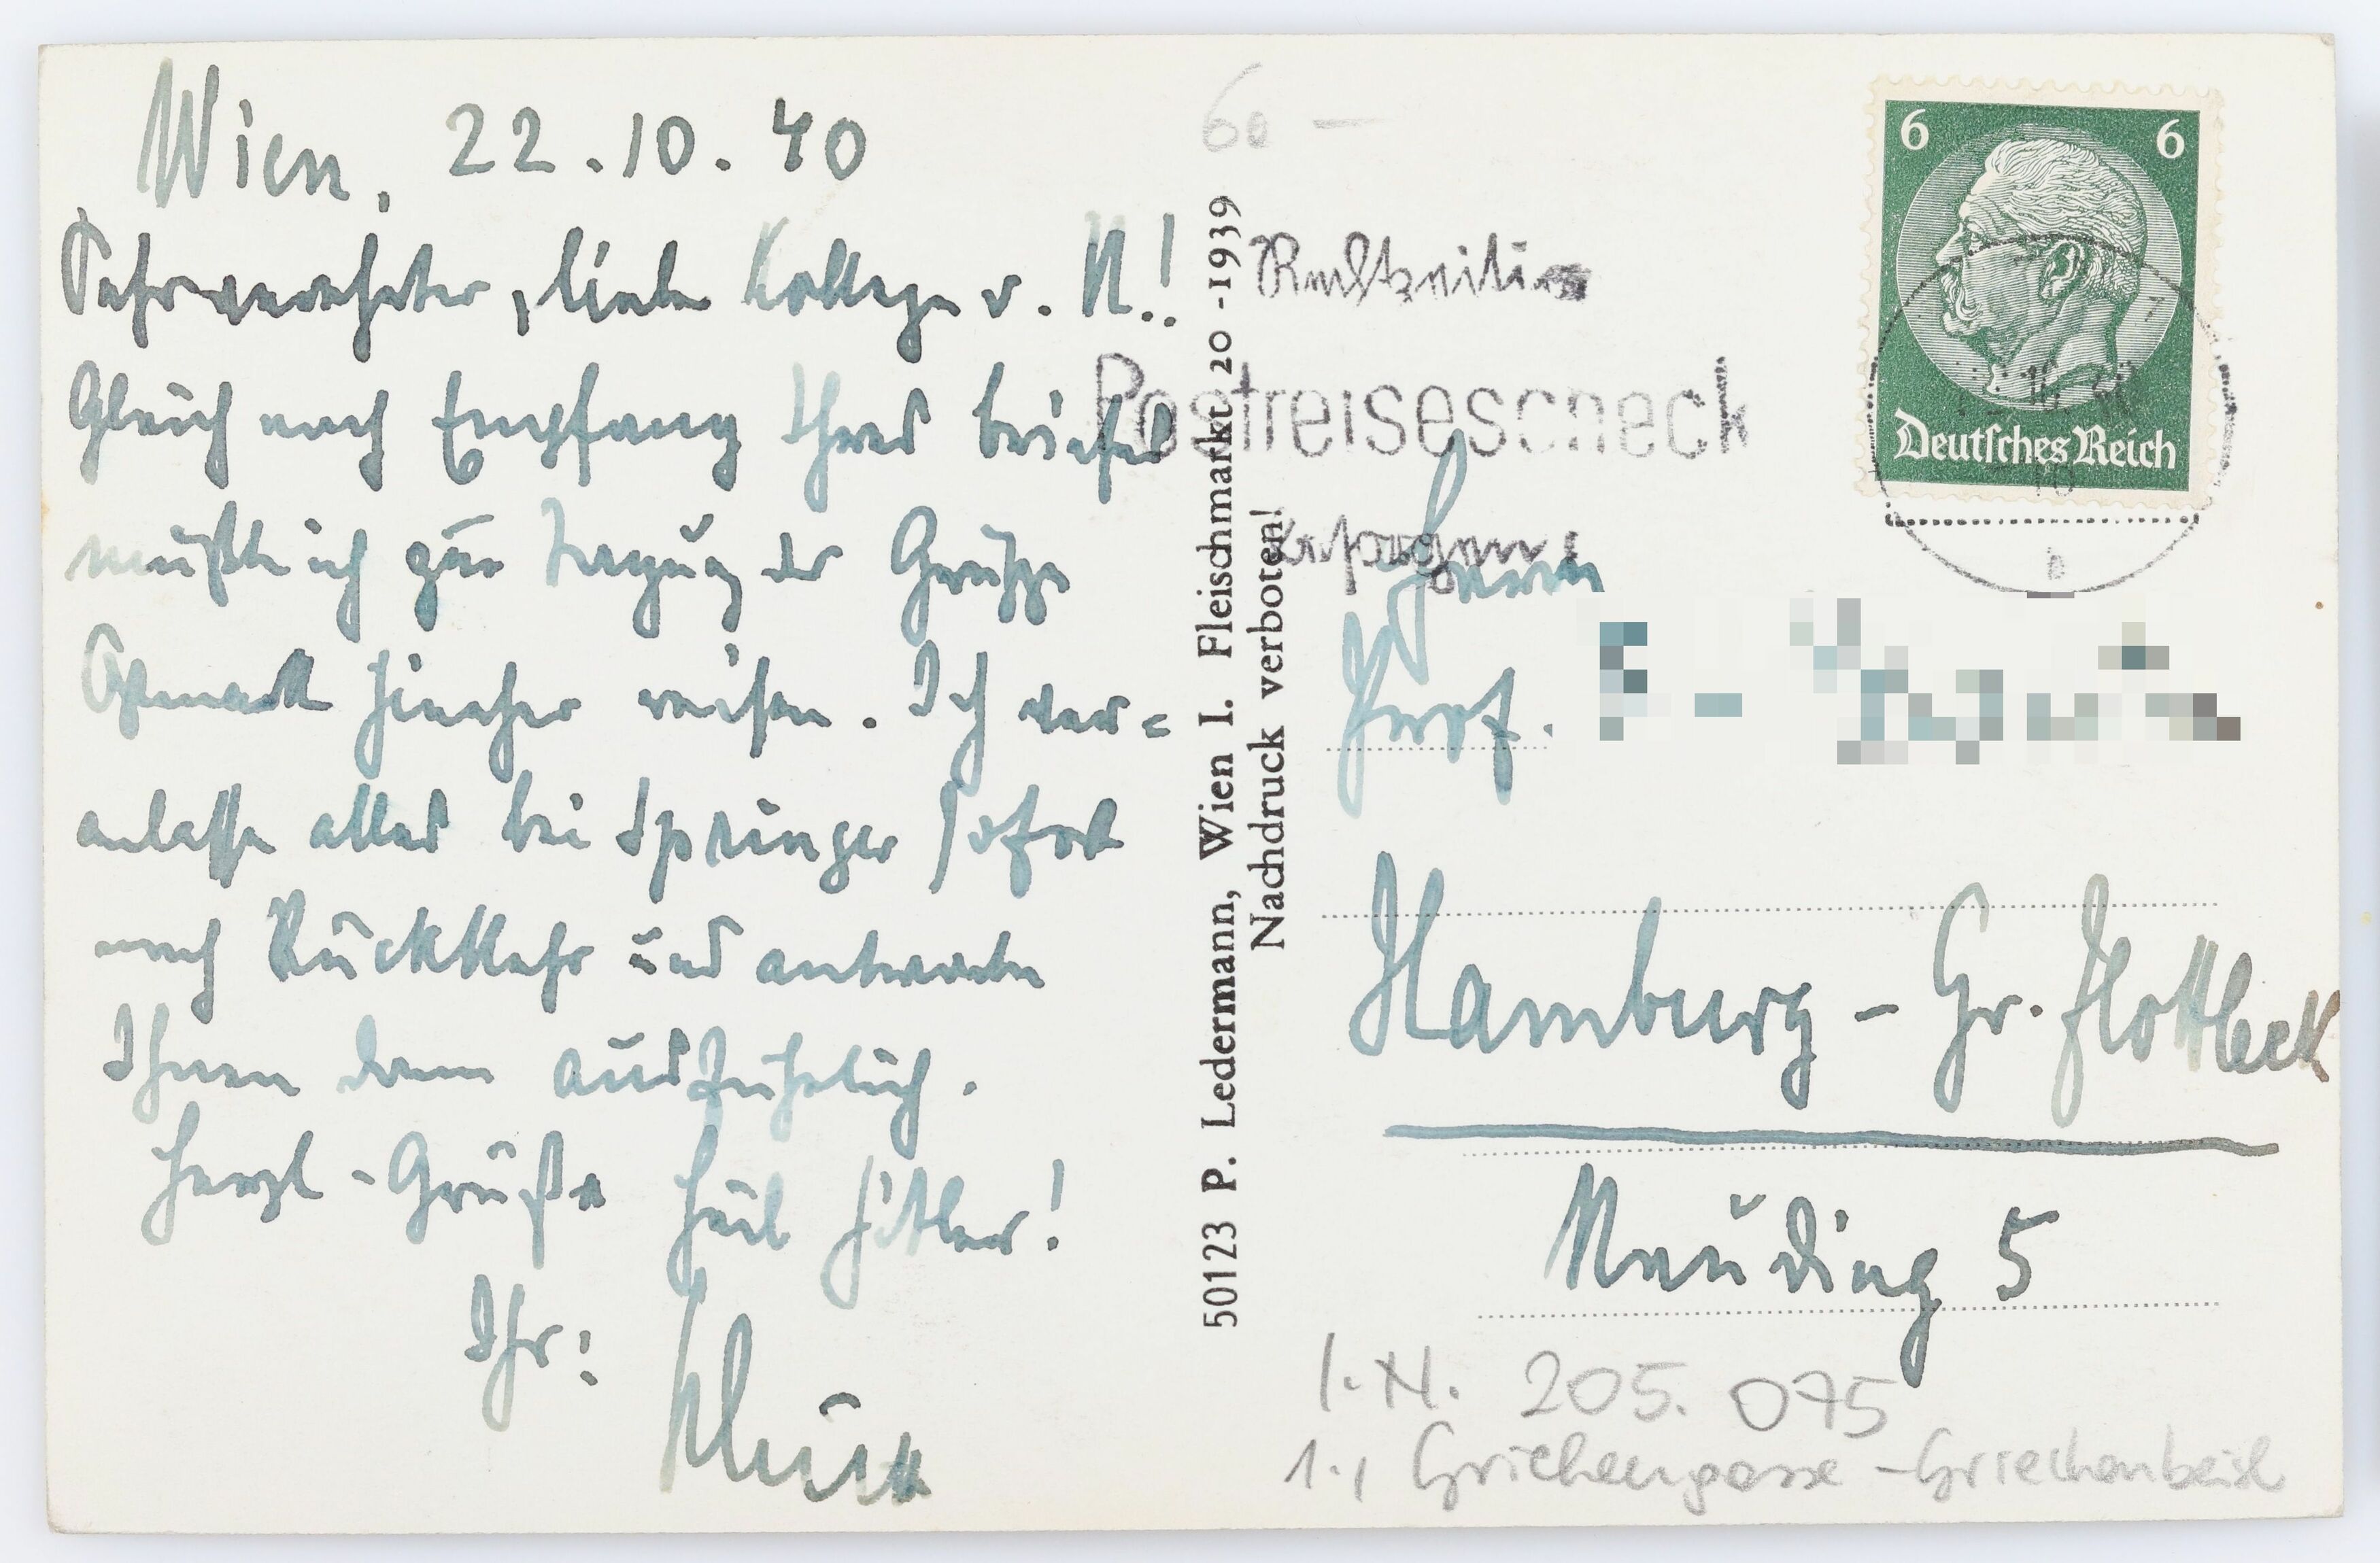 Wien, 22.10.40
Sehr verehrter, lieber Kollege v. N.!
Gleich nach Empfang Ihres Briefes
mußte ich zur der Grütze
hierher reisen. Ich ver=
anlasse alles bei Springer sofort
nach Rückkehr und antworte
Ihnen dann ausführlich.
Herzl - Grüße Heil Hitler!
Ihr:
60 —
50123 P. Ledermann, Wien I. Fleischmarkt 20 -1939
Nachdruck verboten!
Rechtzeitig
Postreisescheck
besorgen
6 6
Deutsches Reich
Herrn
Prof.
Hamburg - Gr. Flottbek
5
I.N. 205.075
1., Griechengasse - Griechenbeisl